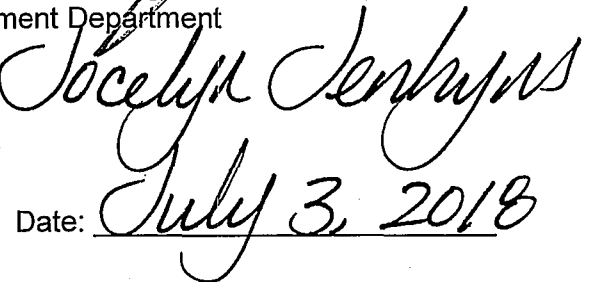 ment Department
Jocelyn Jenkyns
Date: July 3, 2018